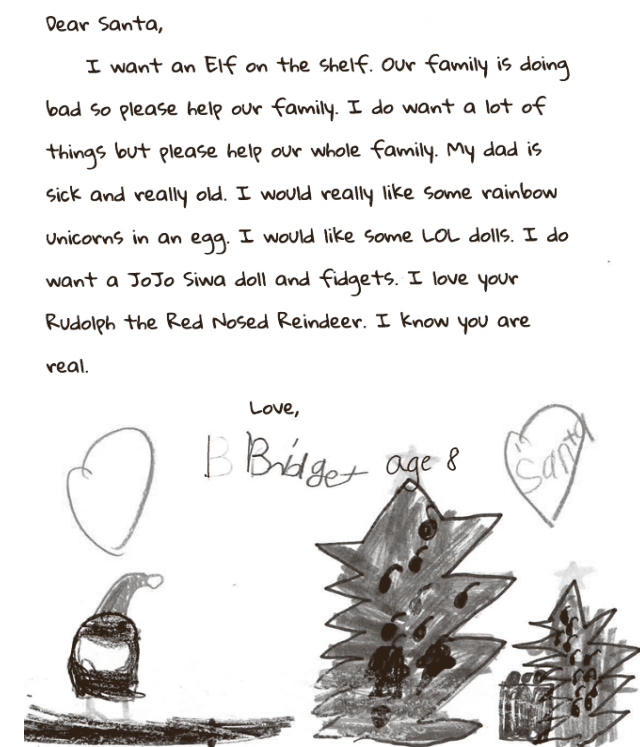 Dear Santa,
I want an Elf on the shelf. Our family is doing
bad so please help our family. I do want a lot of
things but please help our whole family. My dad is
sick and really old. I would really like some rainbow
unicorns in an egg. I would like some LOL dolls. I do
want a JoJo Siwa doll and fidgets. I love your
Rudolph the Red Nosed Reindeer. I know you are
real.
Love,
B Bridget age 8
Santa